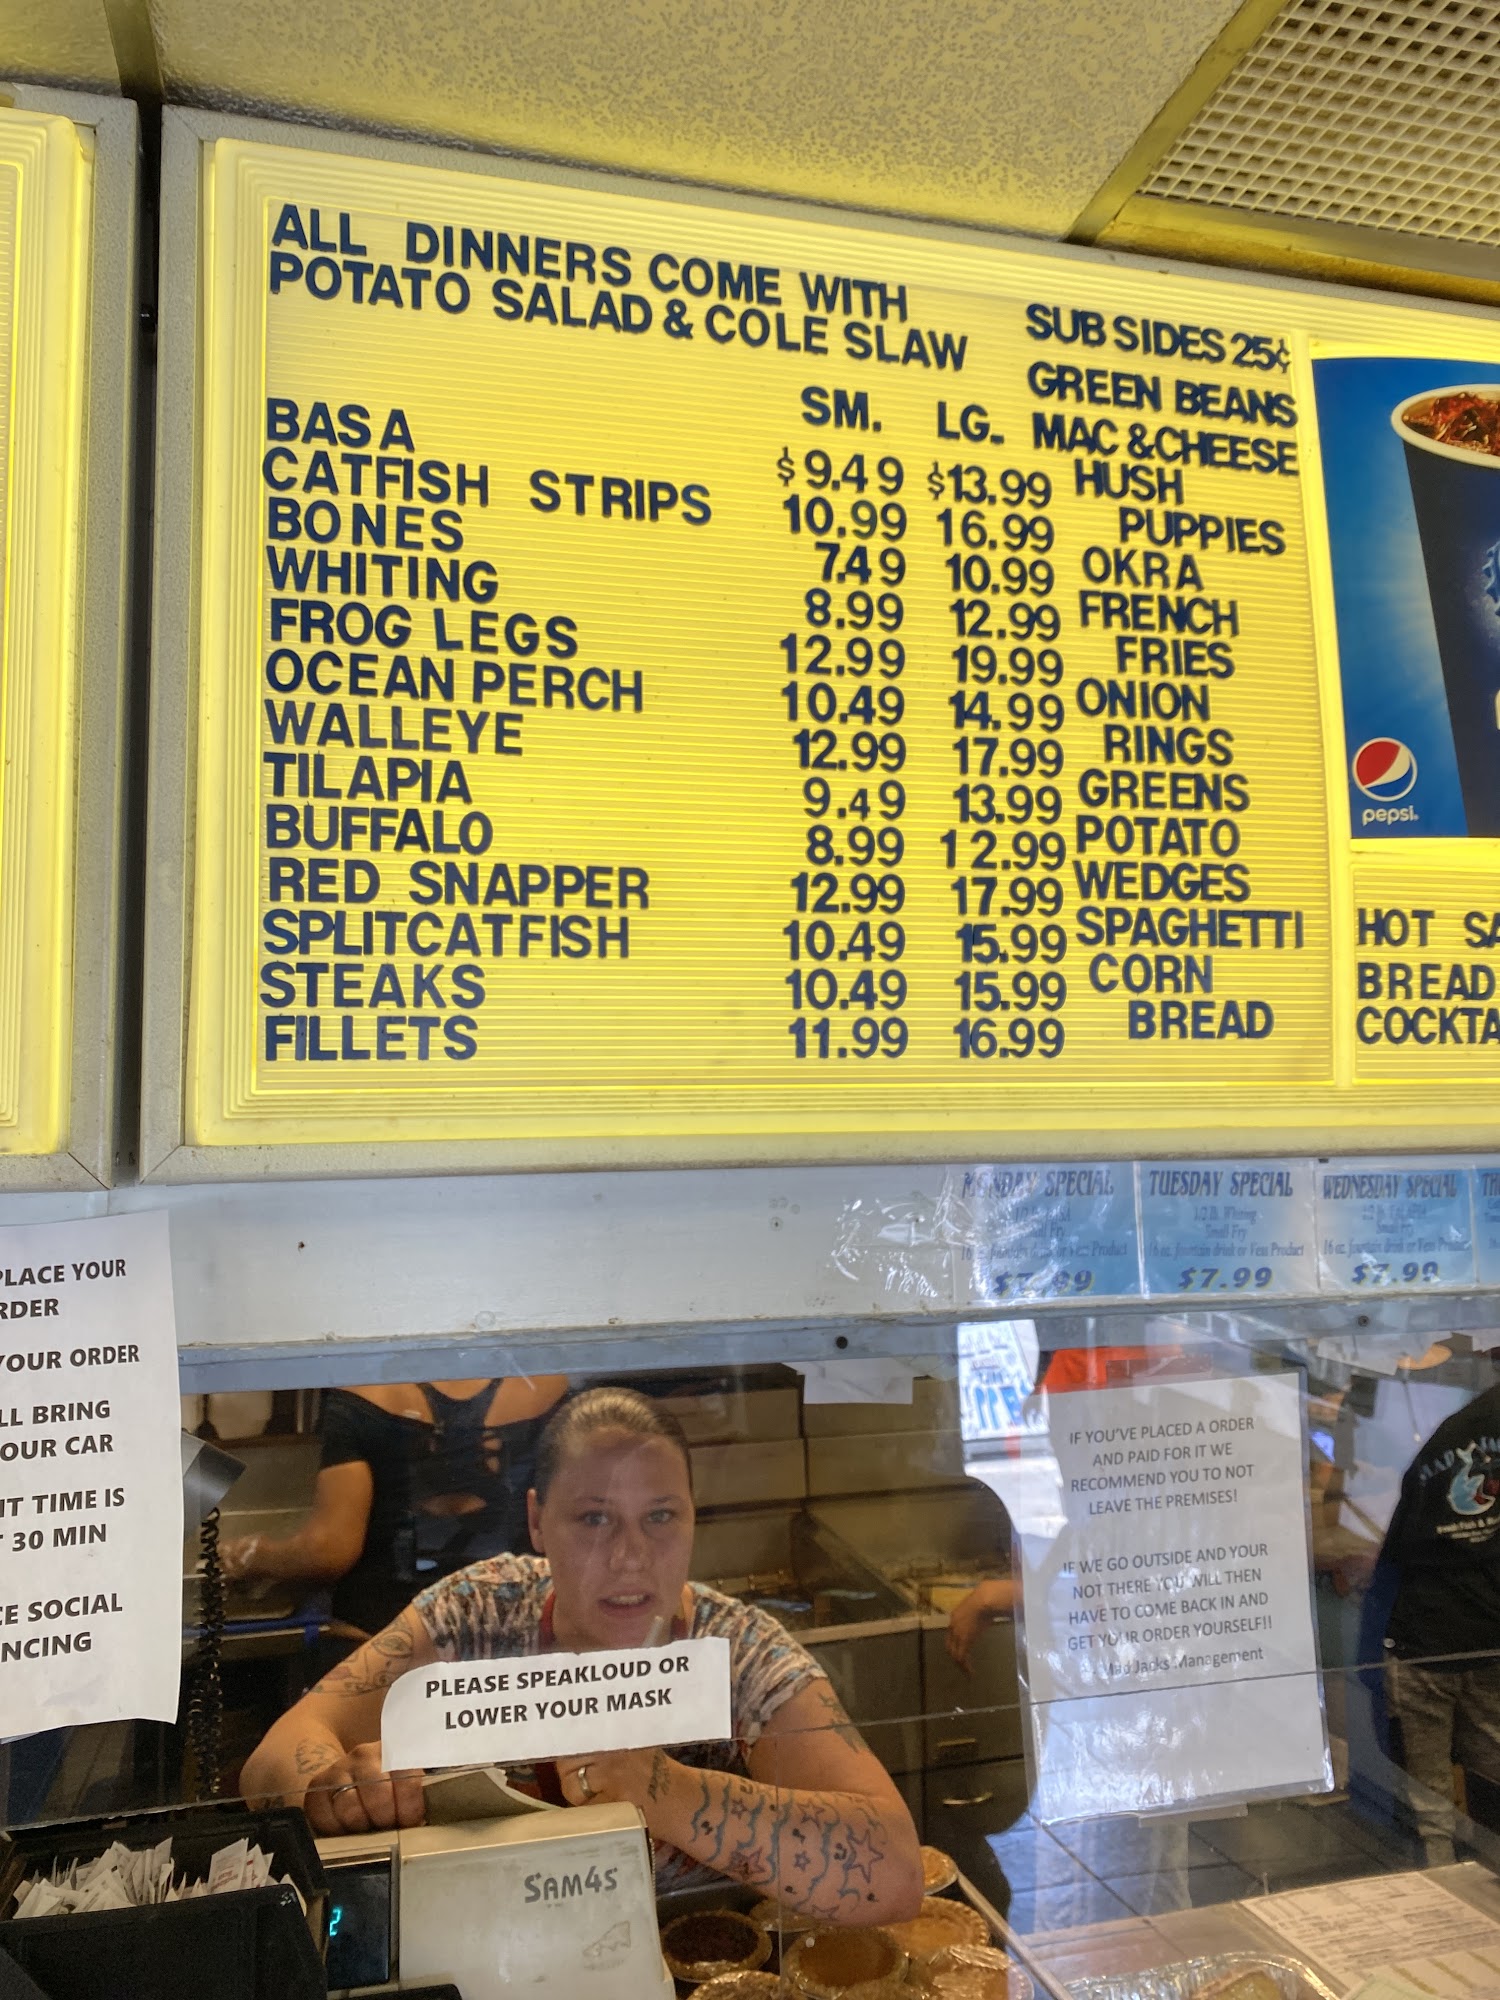 ALL DINNERS COME WITH
POTATO SALAD & COLE SLAW
SM. LG.
BASA $9.49 $13.99
CATFISH STRIPS 10.99 16.99
BONES 7.49 10.99
WHITING 8.99 12.99
FROG LEGS 12.99 19.99
OCEAN PERCH 10.49 14.99
WALLEYE 12.99 17.99
TILAPIA 9.49 13.99
BUFFALO 8.99 12.99
RED SNAPPER 12.99 17.99
SPLITCATFISH 10.49 15.99
STEAKS 10.49 15.99
FILLETS 11.99 16.99
SUB SIDES 25¢
GREEN BEANS
MAC & CHEESE
HUSH
PUPPIES
OKRA
FRENCH
FRIES
ONION
RINGS
GREENS
POTATO
WEDGES
SPAGHETTI
CORN
BREAD
pepsi.
HOT SA
BREAD
COCKTA
MONDAY SPECIAL
Small Fry
16 oz. fountain drink or Vess Product
TUESDAY SPECIAL
1/2 lb. Whiting
Small Fry
16 oz. fountain drink or Vess Product
$7.99
WEDNESDAY SPECIAL
Small Fry
16 oz. fountain drink or Vess Product
$7.99
TH
PLACE YOUR
RDER
YOUR ORDER
LL BRING
OUR CAR
IT TIME IS
30 MIN
CE SOCIAL
NCING
PLEASE SPEAKLOUD OR
LOWER YOUR MASK
SAM4S
2
IF YOU'VE PLACED A ORDER
AND PAID FOR IT WE
RECOMMEND YOU TO NOT
LEAVE THE PREMISES!
IF WE GO OUTSIDE AND YOUR
NOT THERE YOU WILL THEN
HAVE TO COME BACK IN AND
GET YOUR ORDER YOURSELF!!
- Mad Jacks Management